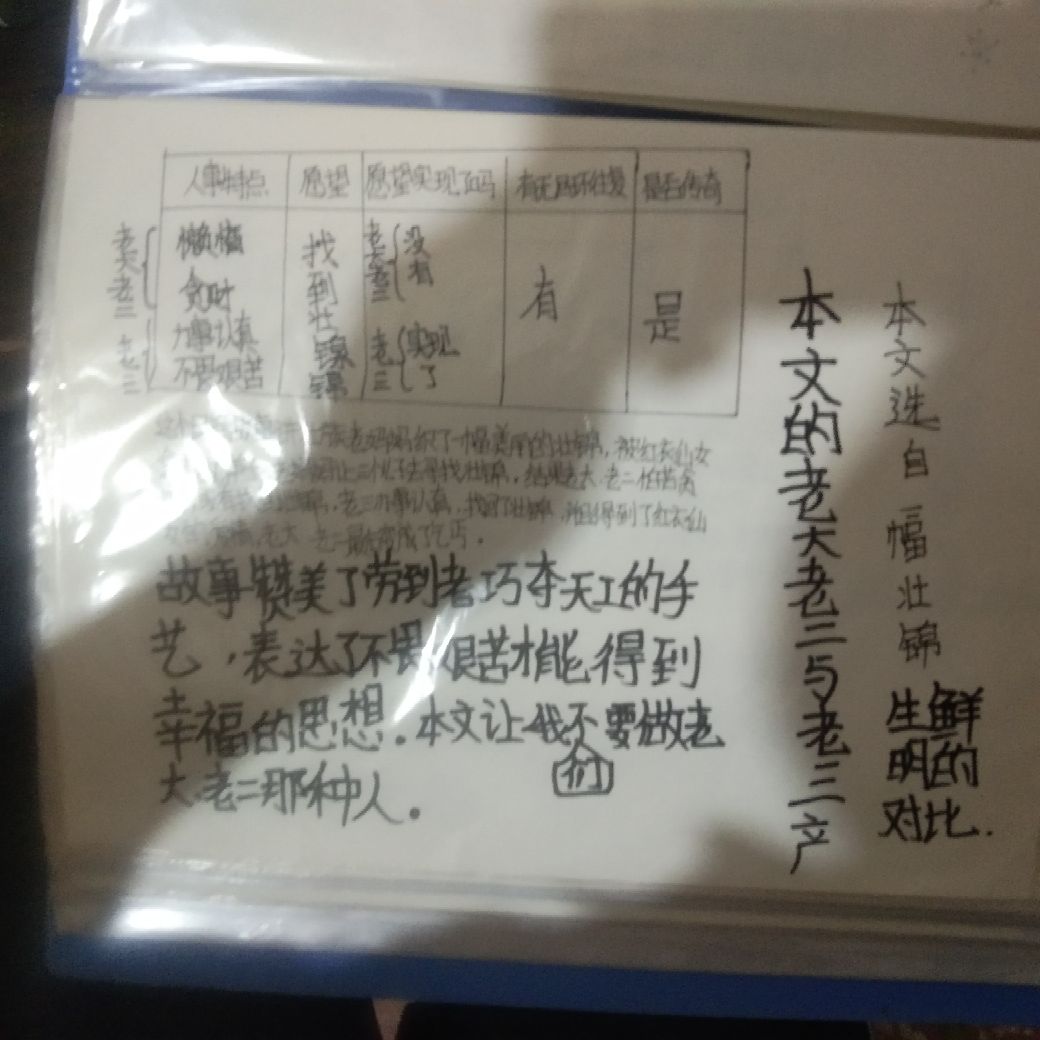 人事特点 愿望 愿望实现了吗 有无循环往复 是否传奇
老大老二 懒惰 贪财
老三 办事认真 不畏艰苦
找到壮锦
老大老二 没有
老三 实现了
有
是
族老妈妈织了一幅美丽的壮锦，被红衣仙女
三个儿子去寻找壮锦，结果老大、老二怕苦贪
老三办事认真，找回了壮锦，得到了红衣仙
老大、老二最终变成了乞丐。
故事赞美了劳到者巧夺天工的手
艺，表达了不畏艰苦才能得到
幸福的思想。本文让我们不要做老
大、老二那种人。
本文选自一幅壮锦
本文的老大老二与老三产
生鲜明的对比.